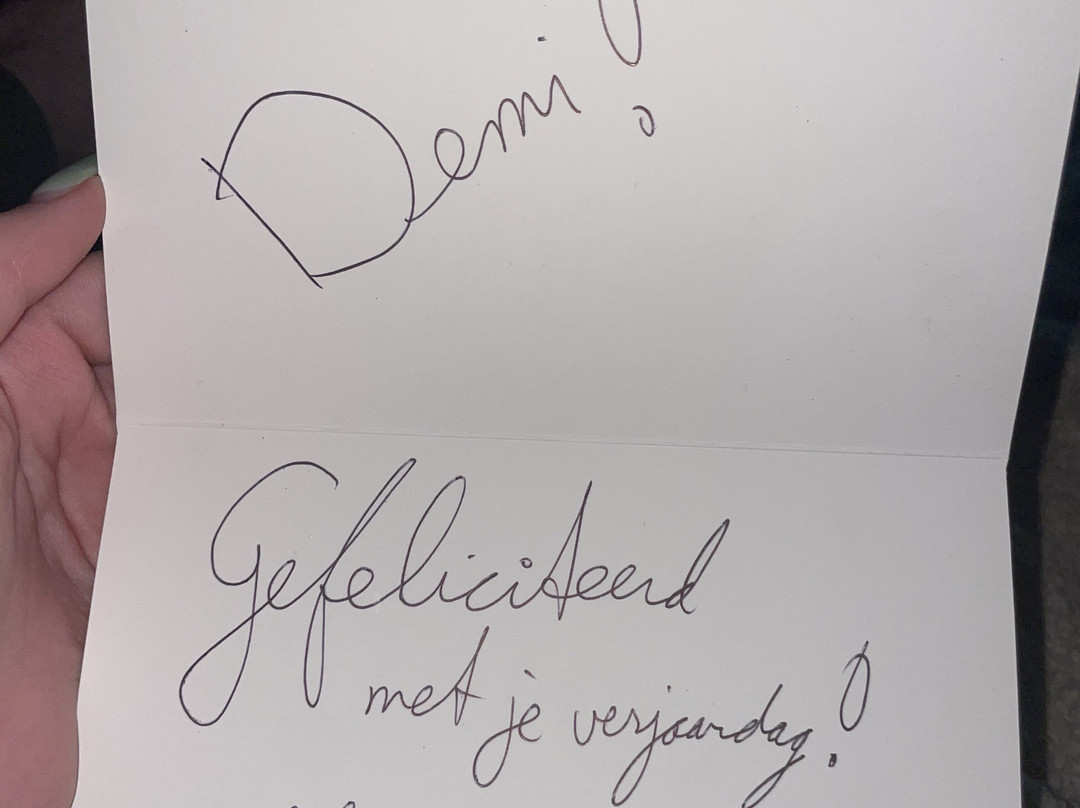 Demi!
Gefeliciteerd
met je verjaardag!